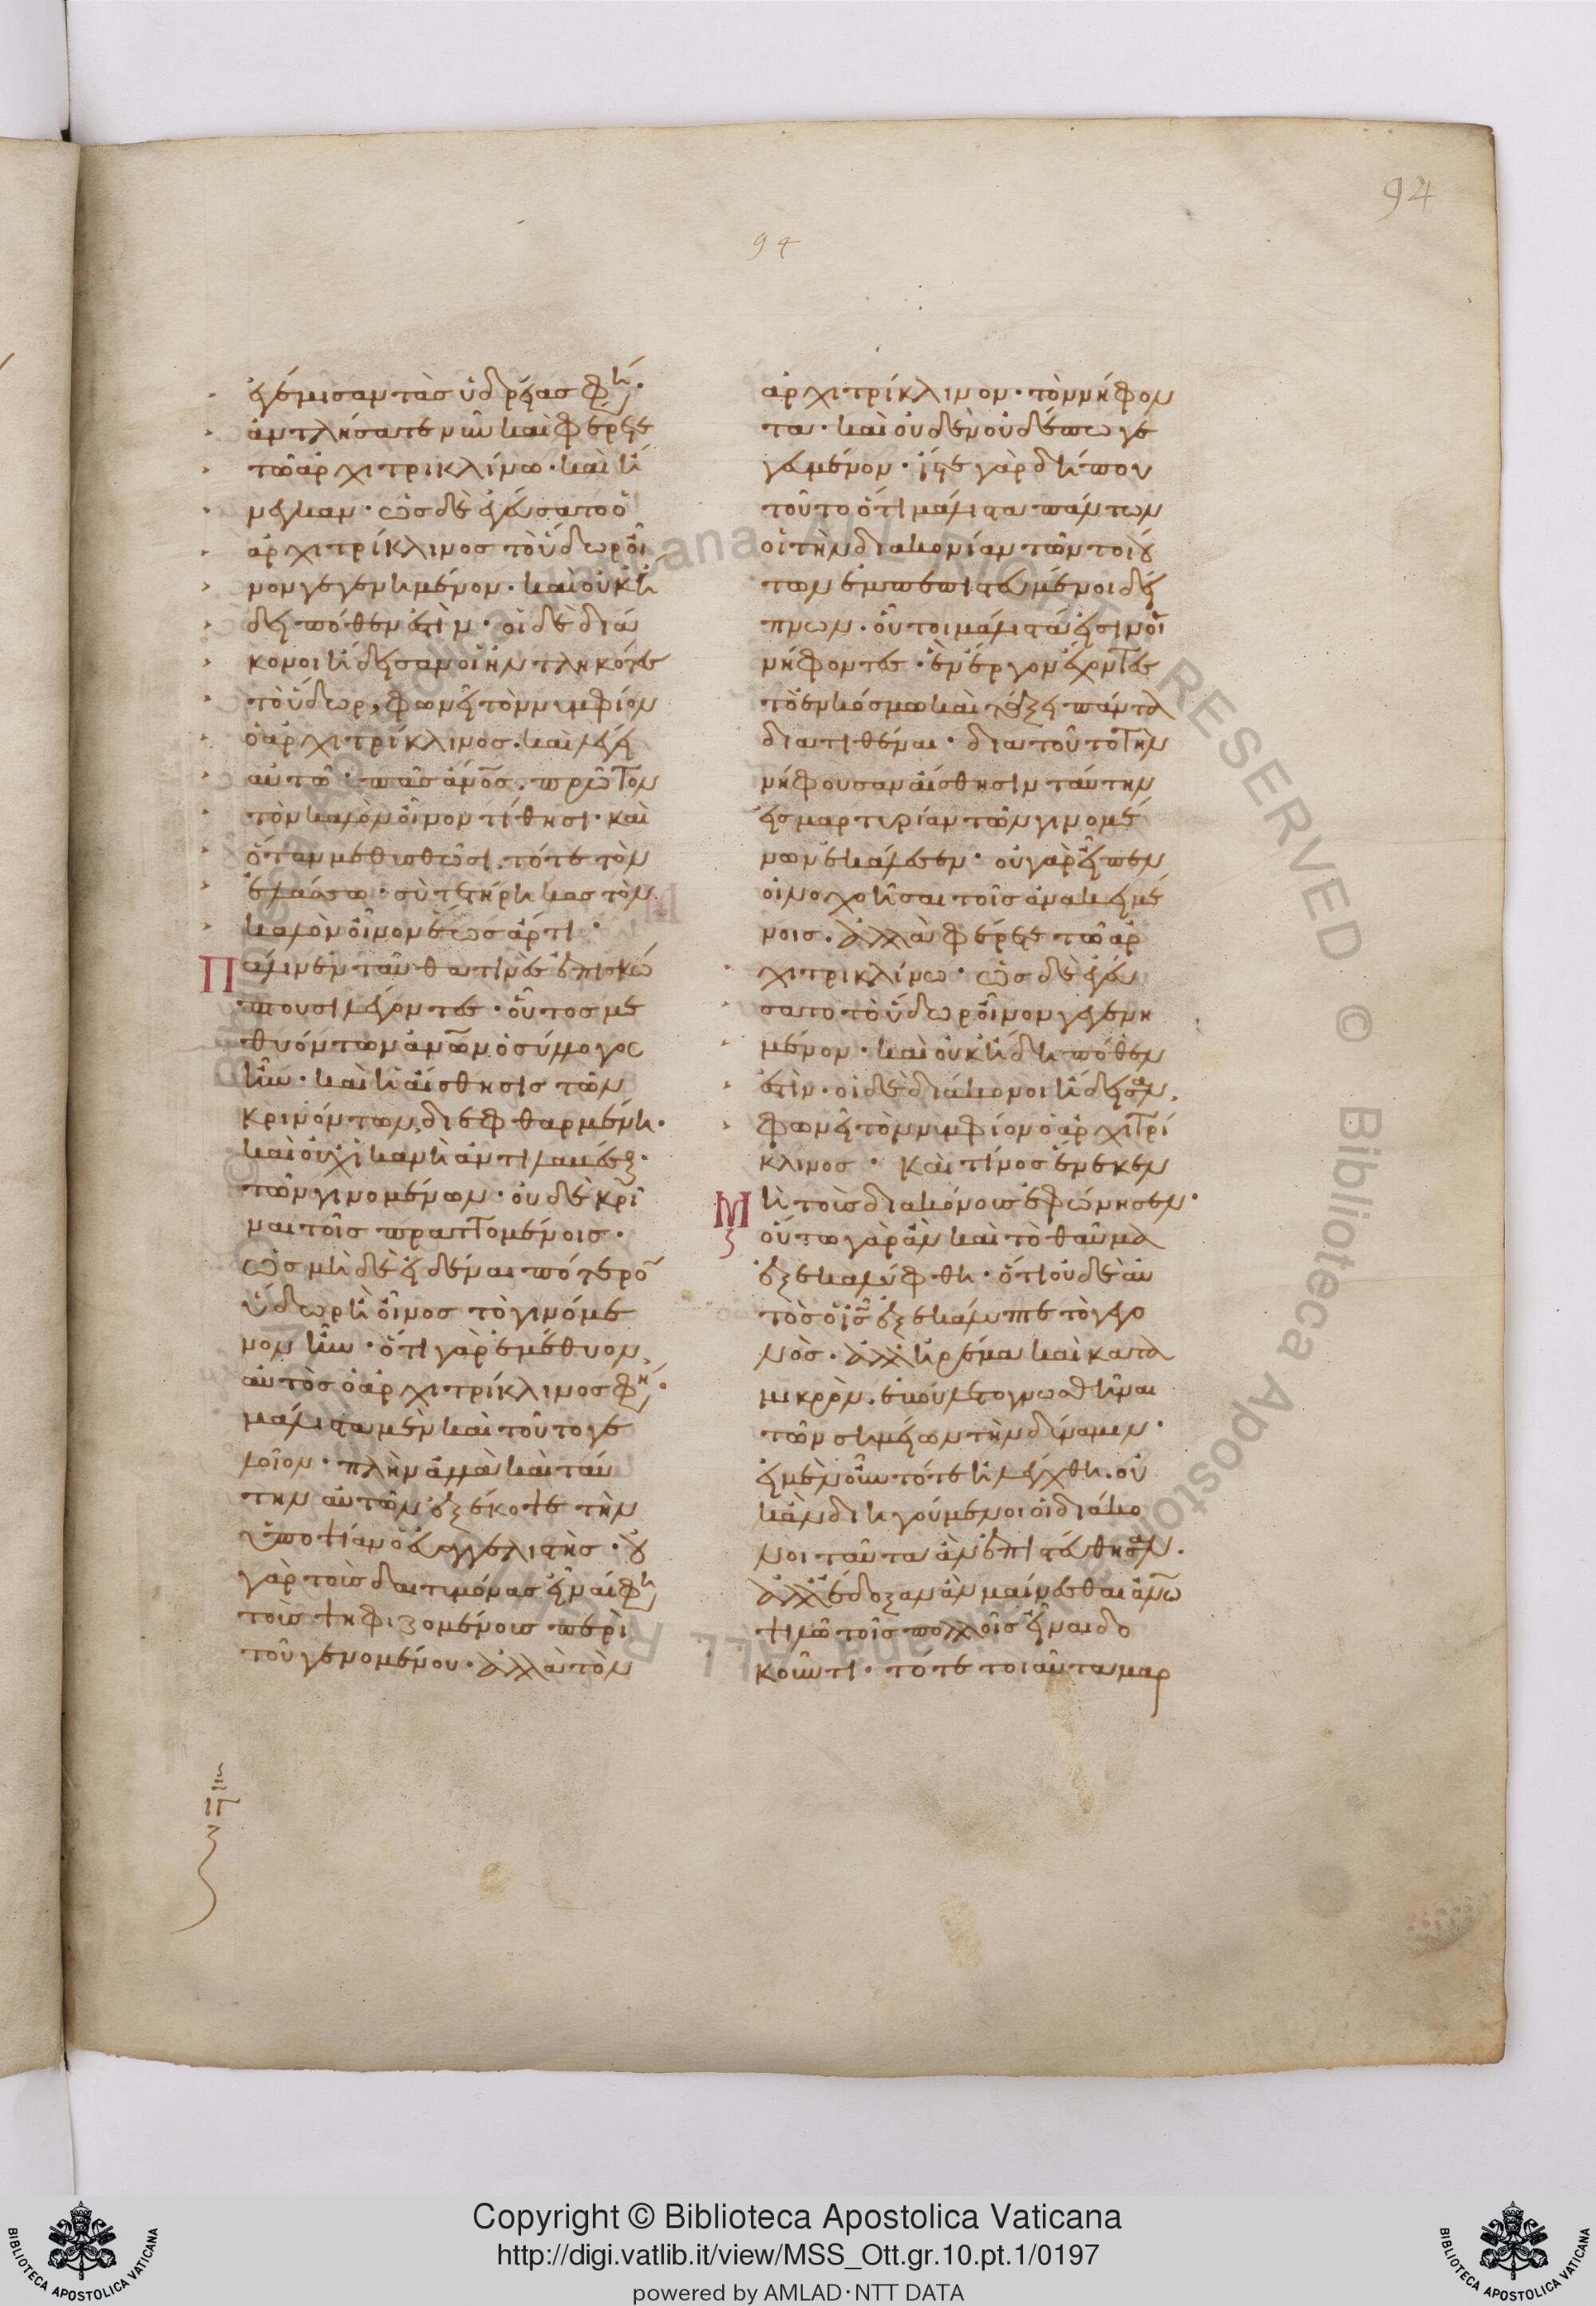 94
94
ἐγέμισαν τὰς ὑδρίας φη.
ἀντλήσατε νῦν καὶ φέρετε
τῶ ἀρχιτρικλίνω. καὶ ἤ
νεγκαν. ὡς δὲ ἐγεύσατο ὁ
ἀρχιτρίκλινος τὸ ὕδωρ οἶ
νον γεγενημένον. καὶ οὐκ ἤ
δει πόθεν ἐστὶν. οἱ δὲ διά
κονοι ἤδεισαν οἱ ἠντληκότες
τὸ ὕδωρ, φωνεῖ τὸν νυμφίον
ὁ ἀρχιτρίκλινος. καὶ λέγει
αὐτῶ. πᾶς ἄνος. πρῶτον
τὸν καλὸν οἶνον τίθησι. καὶ
ὅταν μεθυσθῶσι, τότε τὸν
ἐλάσσω. σὺ τετήρηκας τὸν
καλὸν οἶνον ἕως ἄρτι.
Πάλιν ἐνταῦθα τινὲς ἐπισκώ
πτουσι λέγοντες. οὗτος με
θυόντων ἀνων ὁ σύλλογος
ἦν. καὶ ἡ αἴσθησις τῶν
κρινόντων, διεφθαρμένη.
καὶ οὐχ ἱκανὴ ἀντιλαβέσθαι
τῶν γινομένων. οὐδὲ κρῖ
ναι τοῖς πραττομένοις.
ὡς μὴ δὲ εἰδέναι πότερον
ὕδωρ ἢ οἶνος τὸ γινόμε
νον ἦν. ὅτι γὰρ ἐμέθυον,
αὐτὸς ὁ ἀρχιτρίκλινος φη.
μάλιστα μὲν καὶ τοῦτο γε
λοῖον. πλὴν ἀλλὰ καὶ ταύ
την αὐτῶν ἐξέκοψε τὴν
ὑποψίαν ὁ εὐαγγελιστὴς. οὐ
γὰρ τοὺς δαιτυμόνας εἶναί φη
τοὺς ψηφιζομένους περὶ
τοῦ γενομένου. ἀλλὰ τὸν
ἀρχιτρίκλινον. τὸν νήφον
τα. καὶ οὐδὲν οὐδέπω γε
γευμένον. ἴστε γὰρ δήπου
τοῦτο ὅτι μάλιστα πάντων
οἱ τὴν διακονίαν τῶν τοιού
των ἐμπεπιστευμένοι δεί
πνων. οὗτοι μάλιστά εἰσιν οἱ
νήφοντες. ἓν ἔργον ἔχοντες
τὸ ἐν κόσμω καὶ τάξει πάντα
διατιθέναι. διατοῦτο τὴν
νήφουσαν αἴσθησιν ταύτην
εἰς μαρτυρίαν τῶν γινομέ
νων ἐκάλεσεν. οὐ γὰρ εἶπεν
οἰνοχοῆσαι τοῖς ἀνακειμέ
νοις. ἀλλὰ φέρετε τῶ ἀρ
χιτρικλίνω. ὡς δὲ ἐγεύ
σατο τὸ ὕδωρ οἶνον γεγενη
μένον. καὶ οὐκ ἤδη πόθεν
ἐστὶν. οἱ δὲ διάκονοι ἤδεισαν,
φωνεῖ τὸν νυμφίον ὁ ἀρχιτρί
κλινος. Καὶ τίνος ἕνεκεν
Μὴ τοὺς διακόνους ἐφώνησεν.
οὕτω γὰρ ἂν καὶ τὸ θαῦμα
ἐξεκαλύφθη. ὅτι οὐδὲ αὐ
τὸς ὁ ις ἐξεκάλυπτε τὸ γεγο
νὸς. ἀλλ' ἠρέμα καὶ κατὰ
μικρὸν. ἐβούλετο γνωσθῆναι
τῶν σημείων τὴν δύναμιν.
εἰ μὲν οὖν τότε ἠλέγχθη. οὐ
κὰν διηγούμενοι οἱ διάκο
νοι ταῦτα ἂν ἐπιστεύθησαν.
ἀλλ' ἔδοξαν ἂν μαίνεσθαι ἀνω
ψιλῶ τοῖς πολλοῖς εἶναι δο
κοῦντι. τότε τοιαῦτα μαρ
Copyright © Biblioteca Apostolica Vaticana
http://digi.vatlib.it/view/MSS_Ott.gr.10.pt.1/0197
powered by AMLAD·NTT DATA
BIBLIOTECA APOSTOLICA VATICANA
BIBLIOTECA APOSTOLICA VATICANA